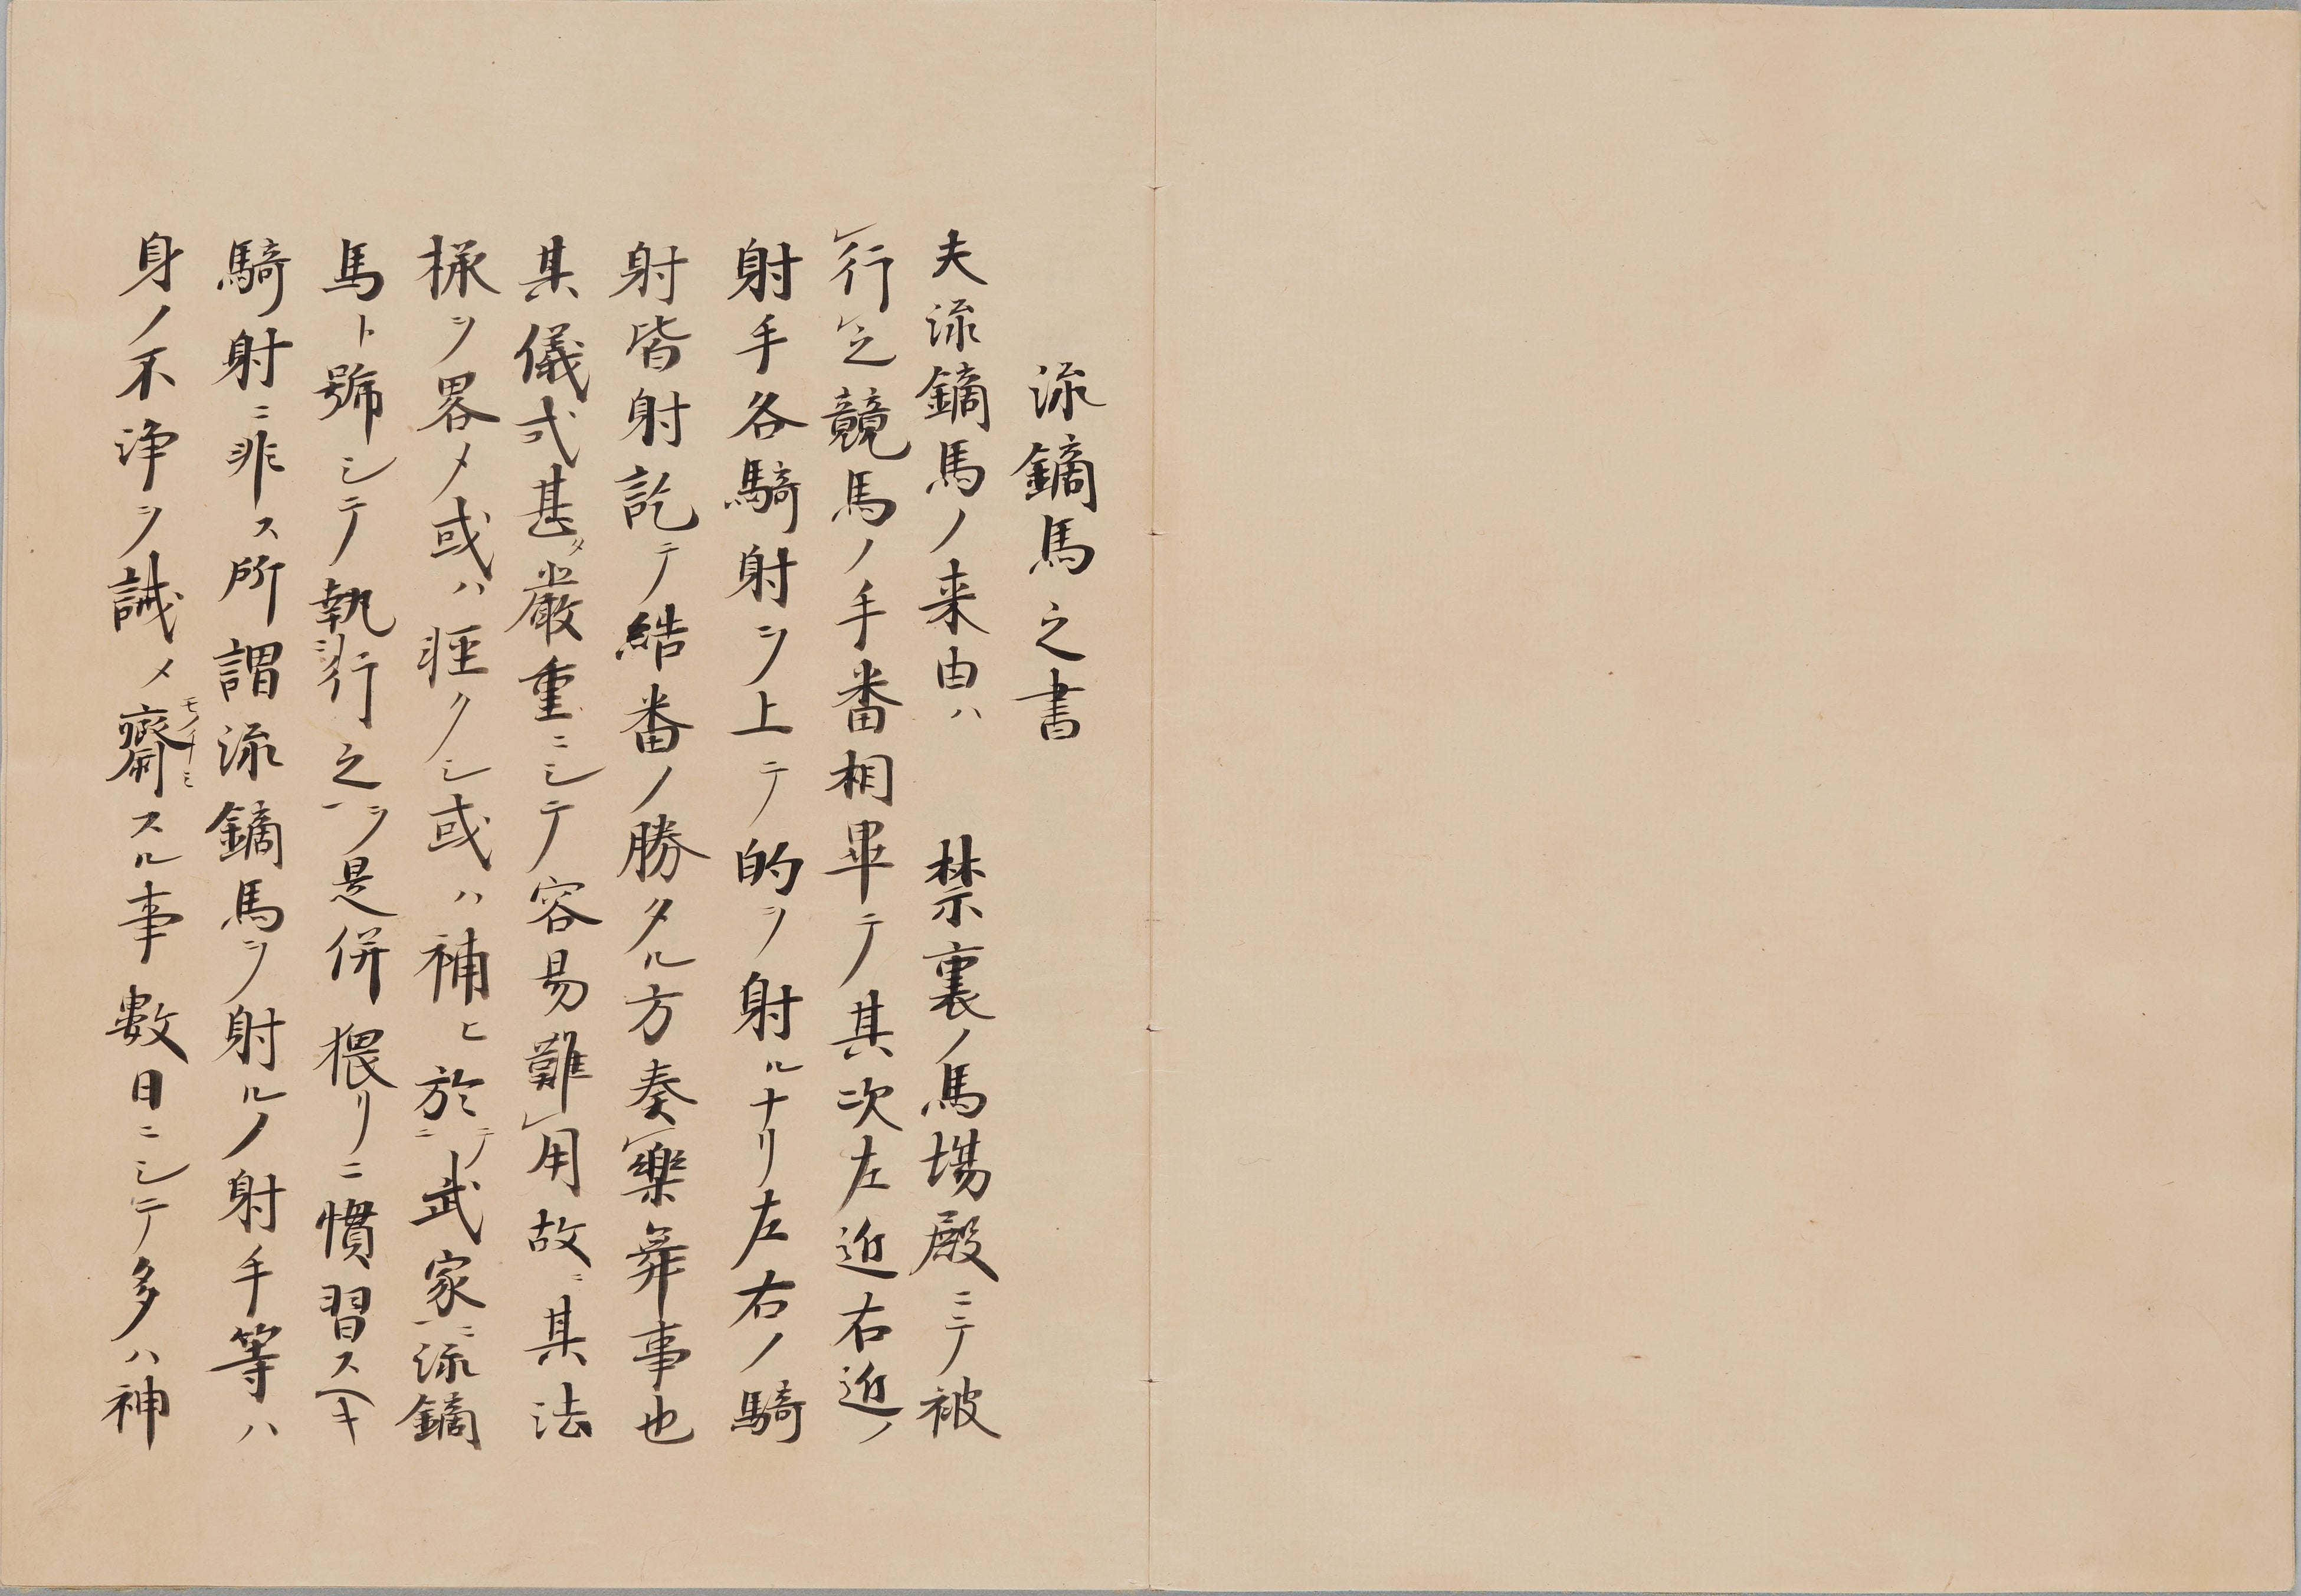 流鏑馬之書
夫流鏑馬ノ来由ハ　禁裏ノ馬場殿ニテ被
レ行レ之競馬ノ手番相畢テ其次左近右近ノ
射手各騎射ヲ上テ的ヲ射ルナリ左右ノ騎
射皆射訖テ結番ノ勝タル方奏レ樂舞事也
其儀式甚タ嚴重ニシテ容易難レ用故ニ其法
様ヲ畧メ或ハ軽クシ或ハ補ヒ於テ二武家ニ一流鏑
馬ト號シテ執二行之一ヲ是併猥リニ慣習スヘキ
騎射ニ非ス所謂流鏑馬ヲ射ルノ射手等ハ
身ノ不浄ヲ誡メ齋モノイミスル事數日ニシテ多ハ神